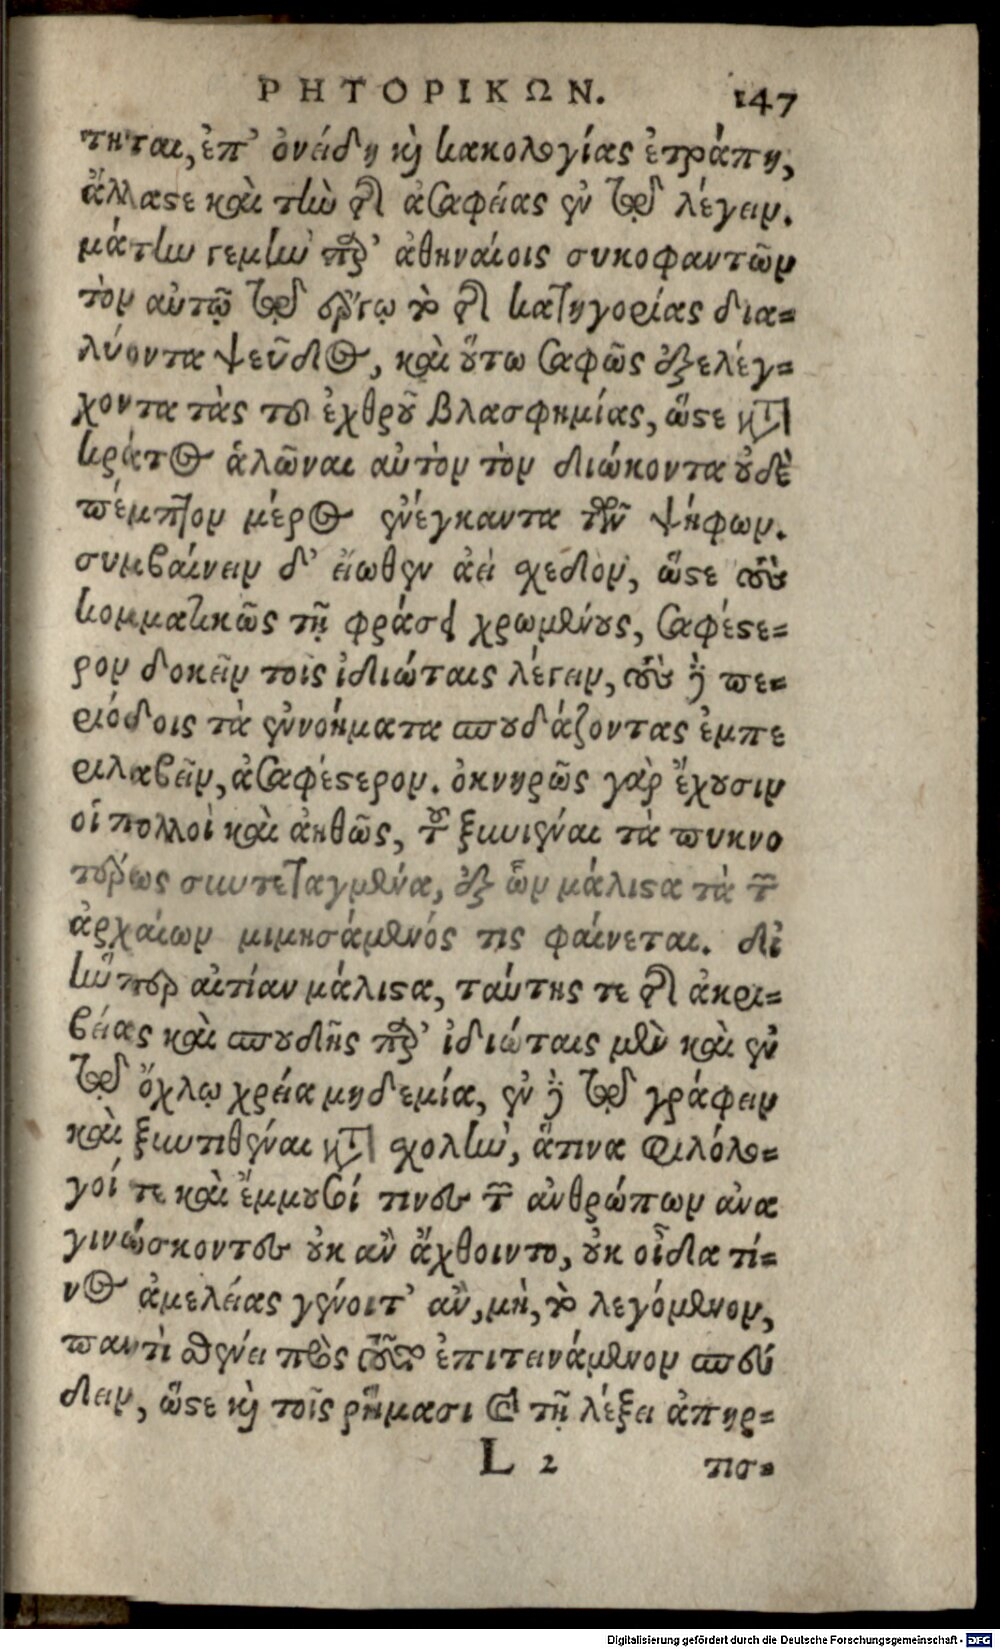 ΡΗΤΟΡΙΚΩΝ. 147
τηται, ἐπ' ὀνείδη κὶ κακολογίας ἐτράπη,
ἄλλαστε καὶ τὴν τῆς ἀσαφείας ἐν τῷ λέγειν.
μάτην γεμὴν παρ' ἀθηναίοις συκοφαντῶν
τὸν αὐτῷ τῷ ἔργῳ τὸ τῆς κατηγορίας δια-
λύοντα ψεῦδος, καὶ οὕτω σαφῶς ἐξελέγ-
χοντα τὰς τοῦ ἐχθροῦ βλασφημίας, ὥστε κατὰ
κράτος ἁλῶναι αὐτὸν τὸν διώκοντα οὐδὲ
πέμπτον μέρος ἐνέγκαντα τῶν ψήφων.
συμβαίνειν δ' εἴωθεν ἀεὶ σχεδὸν, ὥστε τοὺς
κομματικῶς τῇ φράσει χρωμένους, σαφέστε-
ρον δοκεῖν τοῖς ἰδιώταις λέγειν, τοὺς δὲ πε-
ριόδοις τὰ ἐννοήματα σπουδάζοντας ἐμπε
ριλαβεῖν, ἀσαφέστερον. ὀκνηρῶς γὰρ ἔχουσιν
οἱ πολλοὶ καὶ ἀηθῶς, τοῦ ξυνιέναι τὰ πυκνο
τέρως συντεταγμένα, ἐξ ὧν μάλιστα τὰ τῶν
ἀρχαίων μιμησάμενός τις φαίνεται. δι
ἥνπερ αἰτίαν μάλιστα, ταύτης τε τῆς ἀκρι-
βείας καὶ σπουδῆς παρ' ἰδιώταις μὲν καὶ ἐν
τῷ ὄχλῳ χρεία μηδεμία, ἐν δὲ τῷ γράφειν
καὶ ξυντιθέναι κατὰ σχολὴν, ἅτινα φιλόλο-
γοί τε καὶ ἔμμουσοί τινες τῶν ἀνθρώπων ἀνα
γινώσκοντες οὐκ ἂν ἄχθοιντο, οὐκ οἶδα τί-
νος ἀμελείας γένοιτ' ἂν, μὴ, τὸ λεγόμενον,
παντὶ σθένει πρὸς τοῦτο ἐπιτεινάμενον σπεύ
δειν, ὥστε κὶ τοῖς ῥήμασι καὶ τῇ λέξει ἀπηρ-
L 2 τισ-
Digitalisierung gefördert durch die Deutsche Forschungsgemeinschaft - DFG